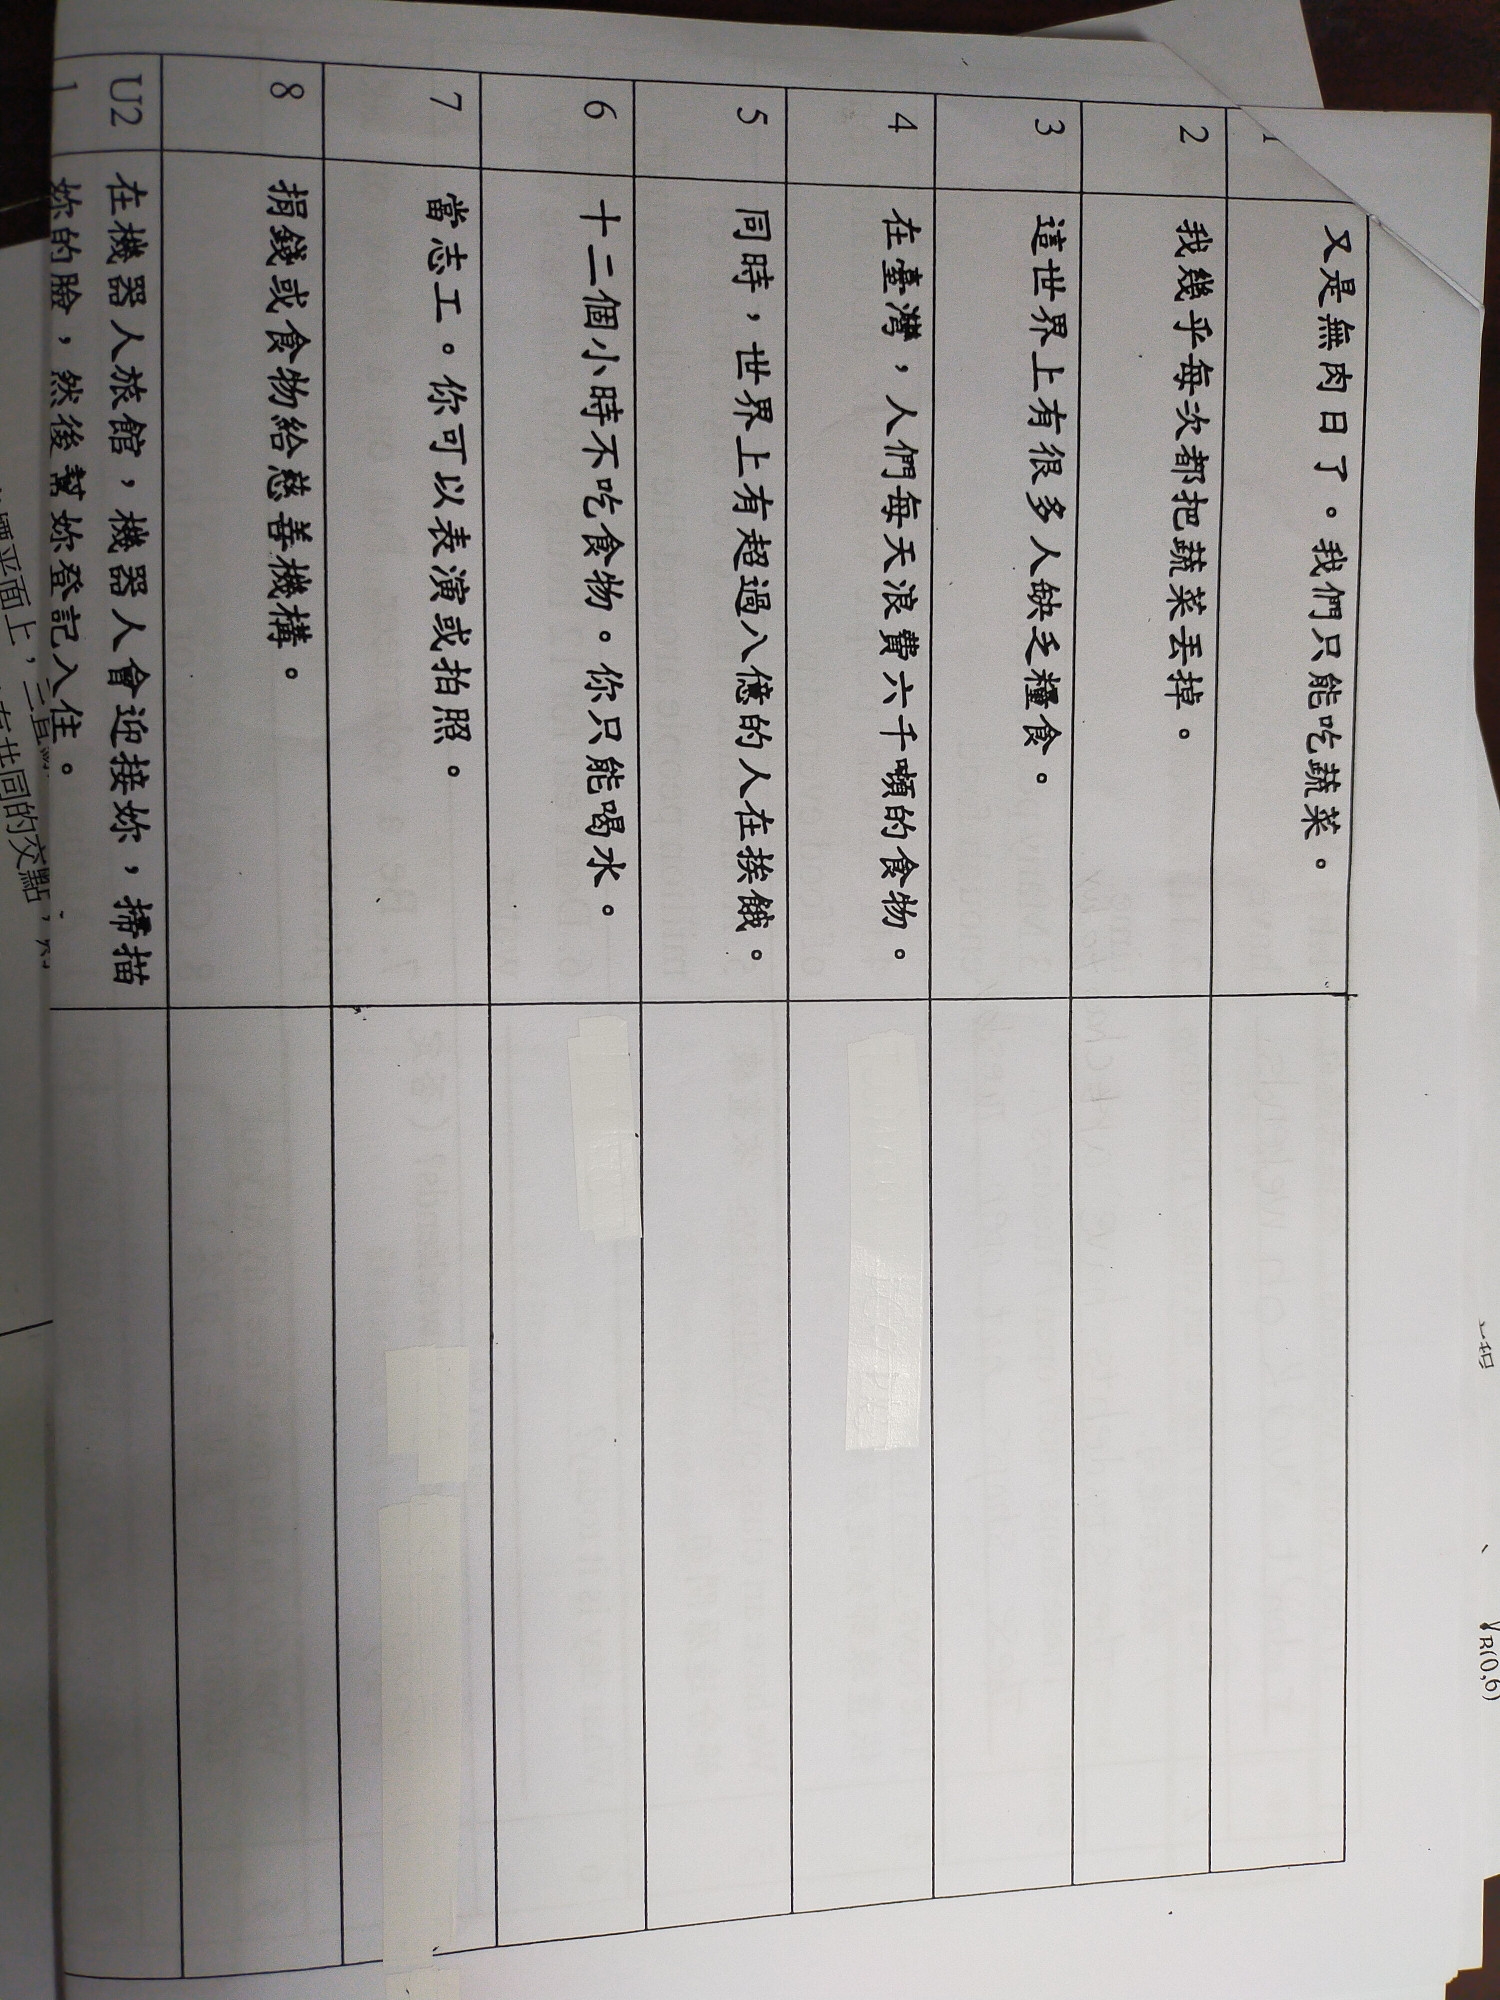 又是無肉日了。我們只能吃蔬菜。
2 我幾乎每次都把蔬菜丟掉。
3 這世界上有很多人缺乏糧食。
4 在臺灣，人們每天浪費六千噸的食物。
5 同時，世界上有超過八億的人在挨餓。
6 十二個小時不吃食物。你只能喝水。
7 當志工。你可以表演或拍照。
8 捐錢或食物給慈善機構。
U2 在機器人旅館，機器人會迎接妳，掃描
1 妳的臉，然後幫妳登記入住。
平面上，三
共同的交點，
B(0,6)